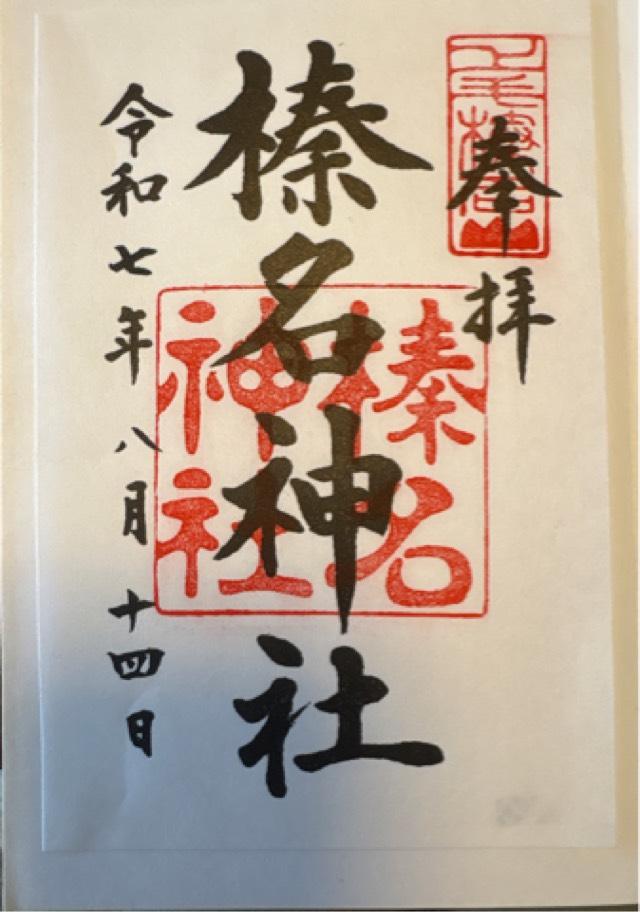 奉拝
榛名神社
榛名神社
令和七年八月十四日